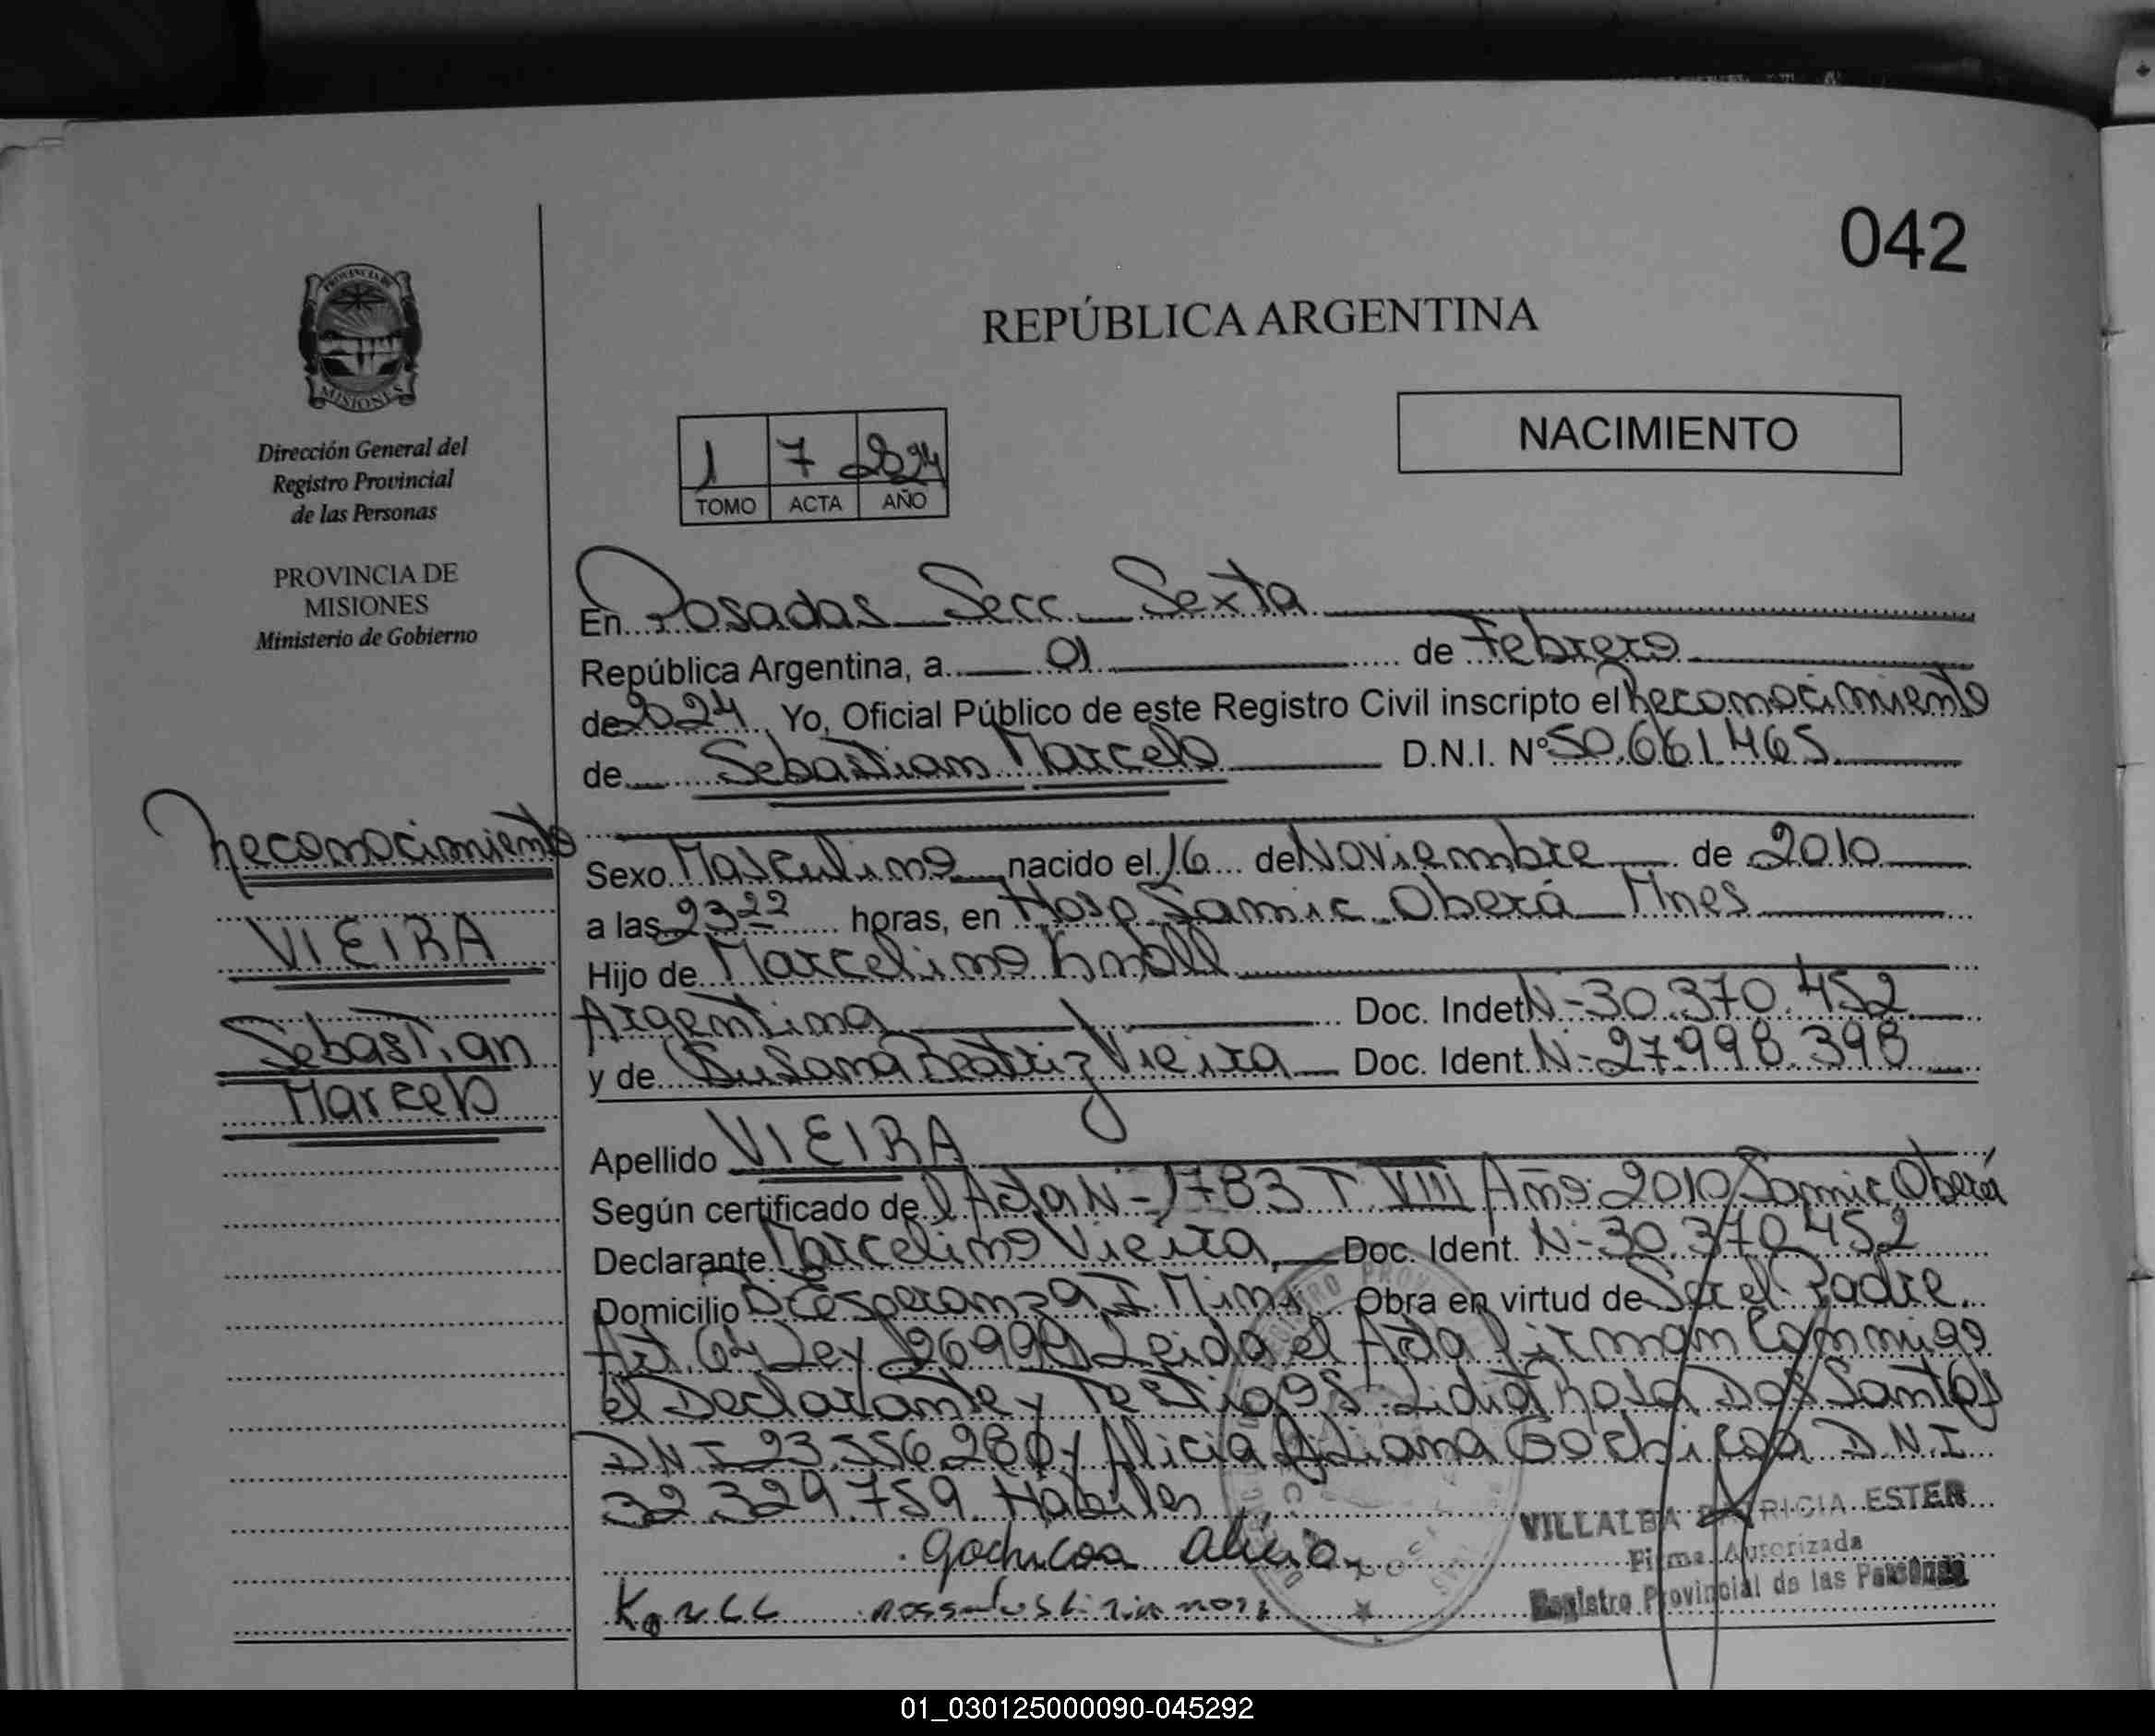 042
PROVINCIA DE
MISIONES
REPÚBLICA ARGENTINA
NACIMIENTO
1 7 2024
TOMO ACTA AÑO
Dirección General del
Registro Provincial
de las Personas
PROVINCIA DE
MISIONES
Ministerio de Gobierno
Reconocimiento
VIEIRA
Sebastian
Marcelo
En Posadas Secc. Sexta
República Argentina, a 01 de Febrero
de 2024 Yo, Oficial Público de este Registro Civil inscripto el Reconocimiento
de Sebastian Marcelo D.N.I. Nº 50.661.465
Sexo Masculino nacido el 16 de Noviembre de 2010
a las 23 22 horas, en Hosp Samic Oberá Mnes
Hijo de Marcelino Knoll
Argentina Doc. Indet N-30.370.452
y de Susana Beatriz Vieira Doc. Ident. N-27.998.398
Apellido VIEIRA
Según certificado de l Acta N-1783 T VIII Año 2010 Samic Oberá
Declarante Marcelino Vieira Doc. Ident. N-30.370452
Domicilio Dr Esperanza I. Mini Obra en virtud de Ser el Padre.
Art. 64 Ley 26994 Leida el Acta firman Conmigo
el Declarante y Testigos Lidia Rosa Dos Santos
DNI 23.556.280 y Alicia Liliana Gochicoa D.N.I
32.329.759. Habiles
Gochicoa Alicia
VILLALBA PATRICIA ESTER
Firma Autorizada
Registro Provincial de las Personas
01_030125000090-045292